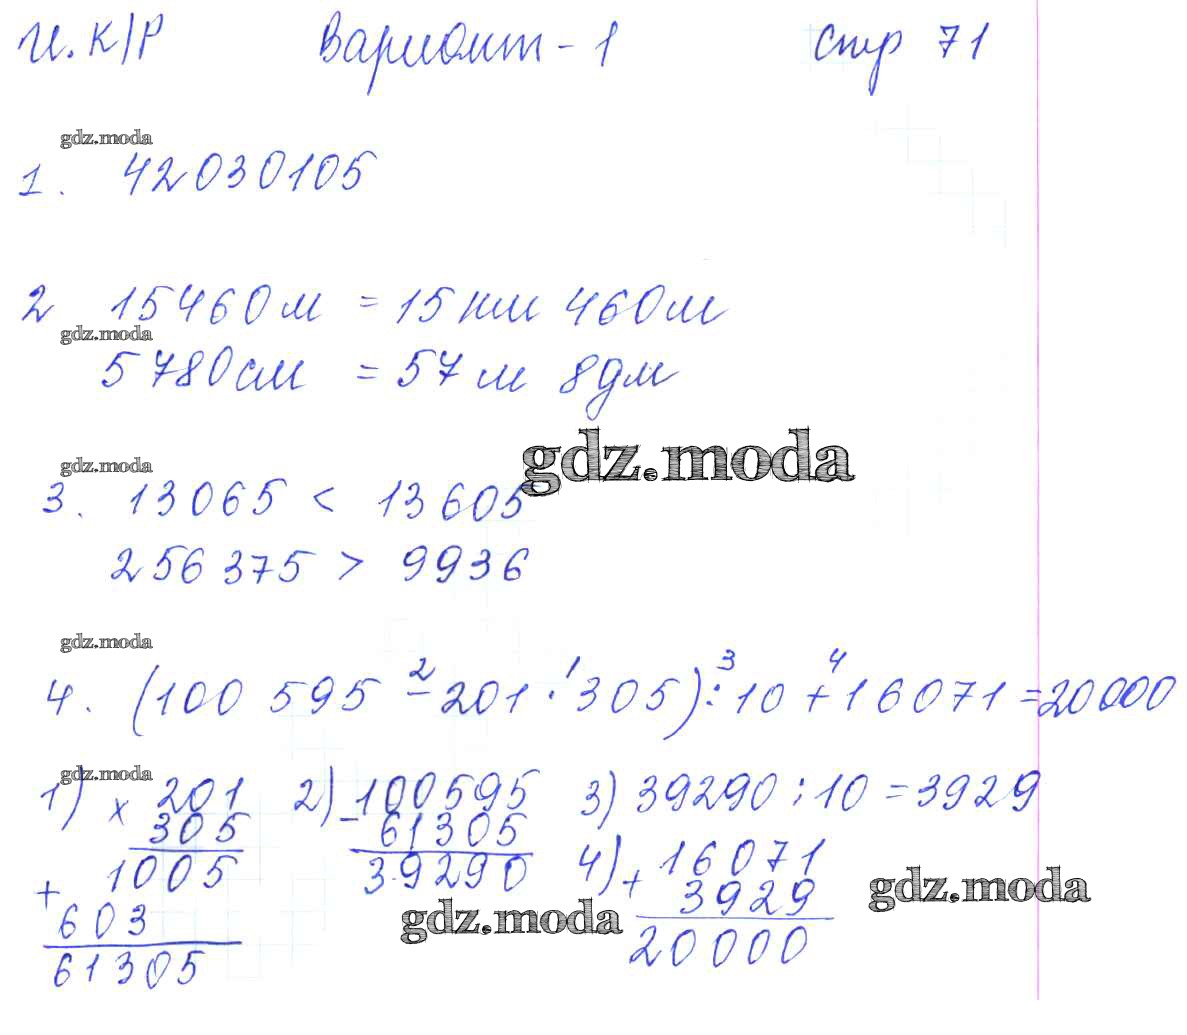 И. К/Р Вариант-1 стр 71
gdz.moda
1. 42030105
2 15460м = 15 км 460м
gdz.moda
5780см = 57м 8дм
gdz.moda
gdz.moda
3. 13065 < 13605
256375 > 9936
gdz.moda
2 1 3 4
4. (100 595 - 201 · 305) : 10 + 16071 = 20000
gdz.moda
1) × 201 2) - 100595 3) 39290 : 10 = 3929
305 61305
1005 39290 4) + 16071
+ 603 3929
61305 20000
gdz.moda
gdz.moda